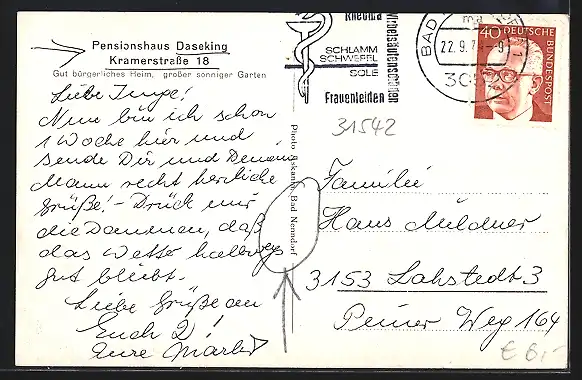 Pensionshaus Daseking
Kramerstraße 18
Gut bürgerliches Heim, großer sonniger Garten
Liebe Inge!
Nun bin ich schon
1 Woche hier und
sende Dir und Deinem
Mann recht herzliche
Grüße! - Drück mir
die Daumen, daß
das Wetter halbwegs
gut bleibt.
Liebe Grüße an
Euch 2!
Eure
Photo Askania, Bad Nenndorf
Rheuma
SCHLAMM
SCHWEFEL
SOLE
Frauenleiden
Wirbelsäulenschäden
BAD
22.9.7
40 DEUTSCHE BUNDESPOST
31542
Familie
Hans Müldner
3153 Lahstedt 3
Peiner Weg 164
€ 6,-